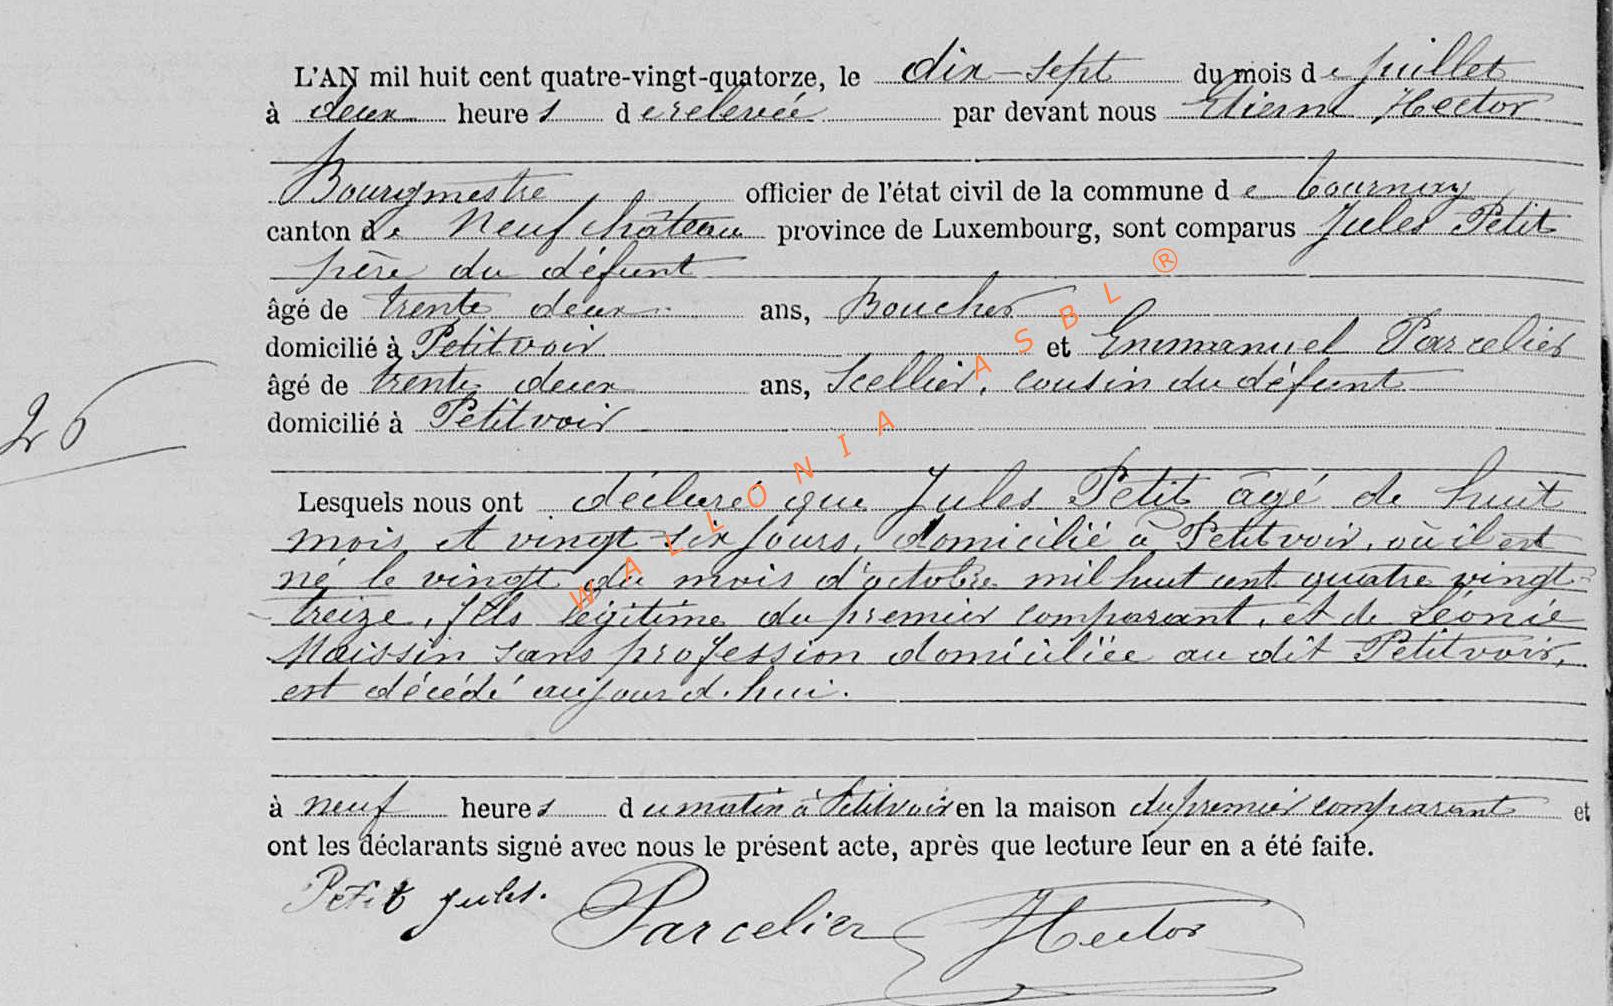 L'AN mil huit cent quatre-vingt-quatorze, le dix-sept du mois de juillet
à deux heures de relevée par devant nous Etienne Hector
Bourgmestre officier de l'état civil de la commune de Tournay
canton de Neufchâteau province de Luxembourg, sont comparus Jules Petit
père du défunt
âgé de trente deux ans, Boucher
domicilié à Petitvoir et Emmanuel Parcelier
âgé de trente deux ans, Scellier, cousin du défunt
26
domicilié à Petitvoir
Lesquels nous ont déclaré que Jules Petit âgé de huit
mois et vingt-six jours, domicilié à Petitvoir, où il est
né le vingt du mois d'octobre mil huit cent quatre vingt-
treize, fils légitime du premier comparant, et de Léonie
Maissin sans profession domiciliée au dit Petitvoir,
est décédé aujourd'hui.
à neuf heures du matin à Petitvoir en la maison du premier comparant et
ont les déclarants signé avec nous le présent acte, après que lecture leur en a été faite.
Petit Jules. Parcelier Hector
WALLONIA ASBL ®